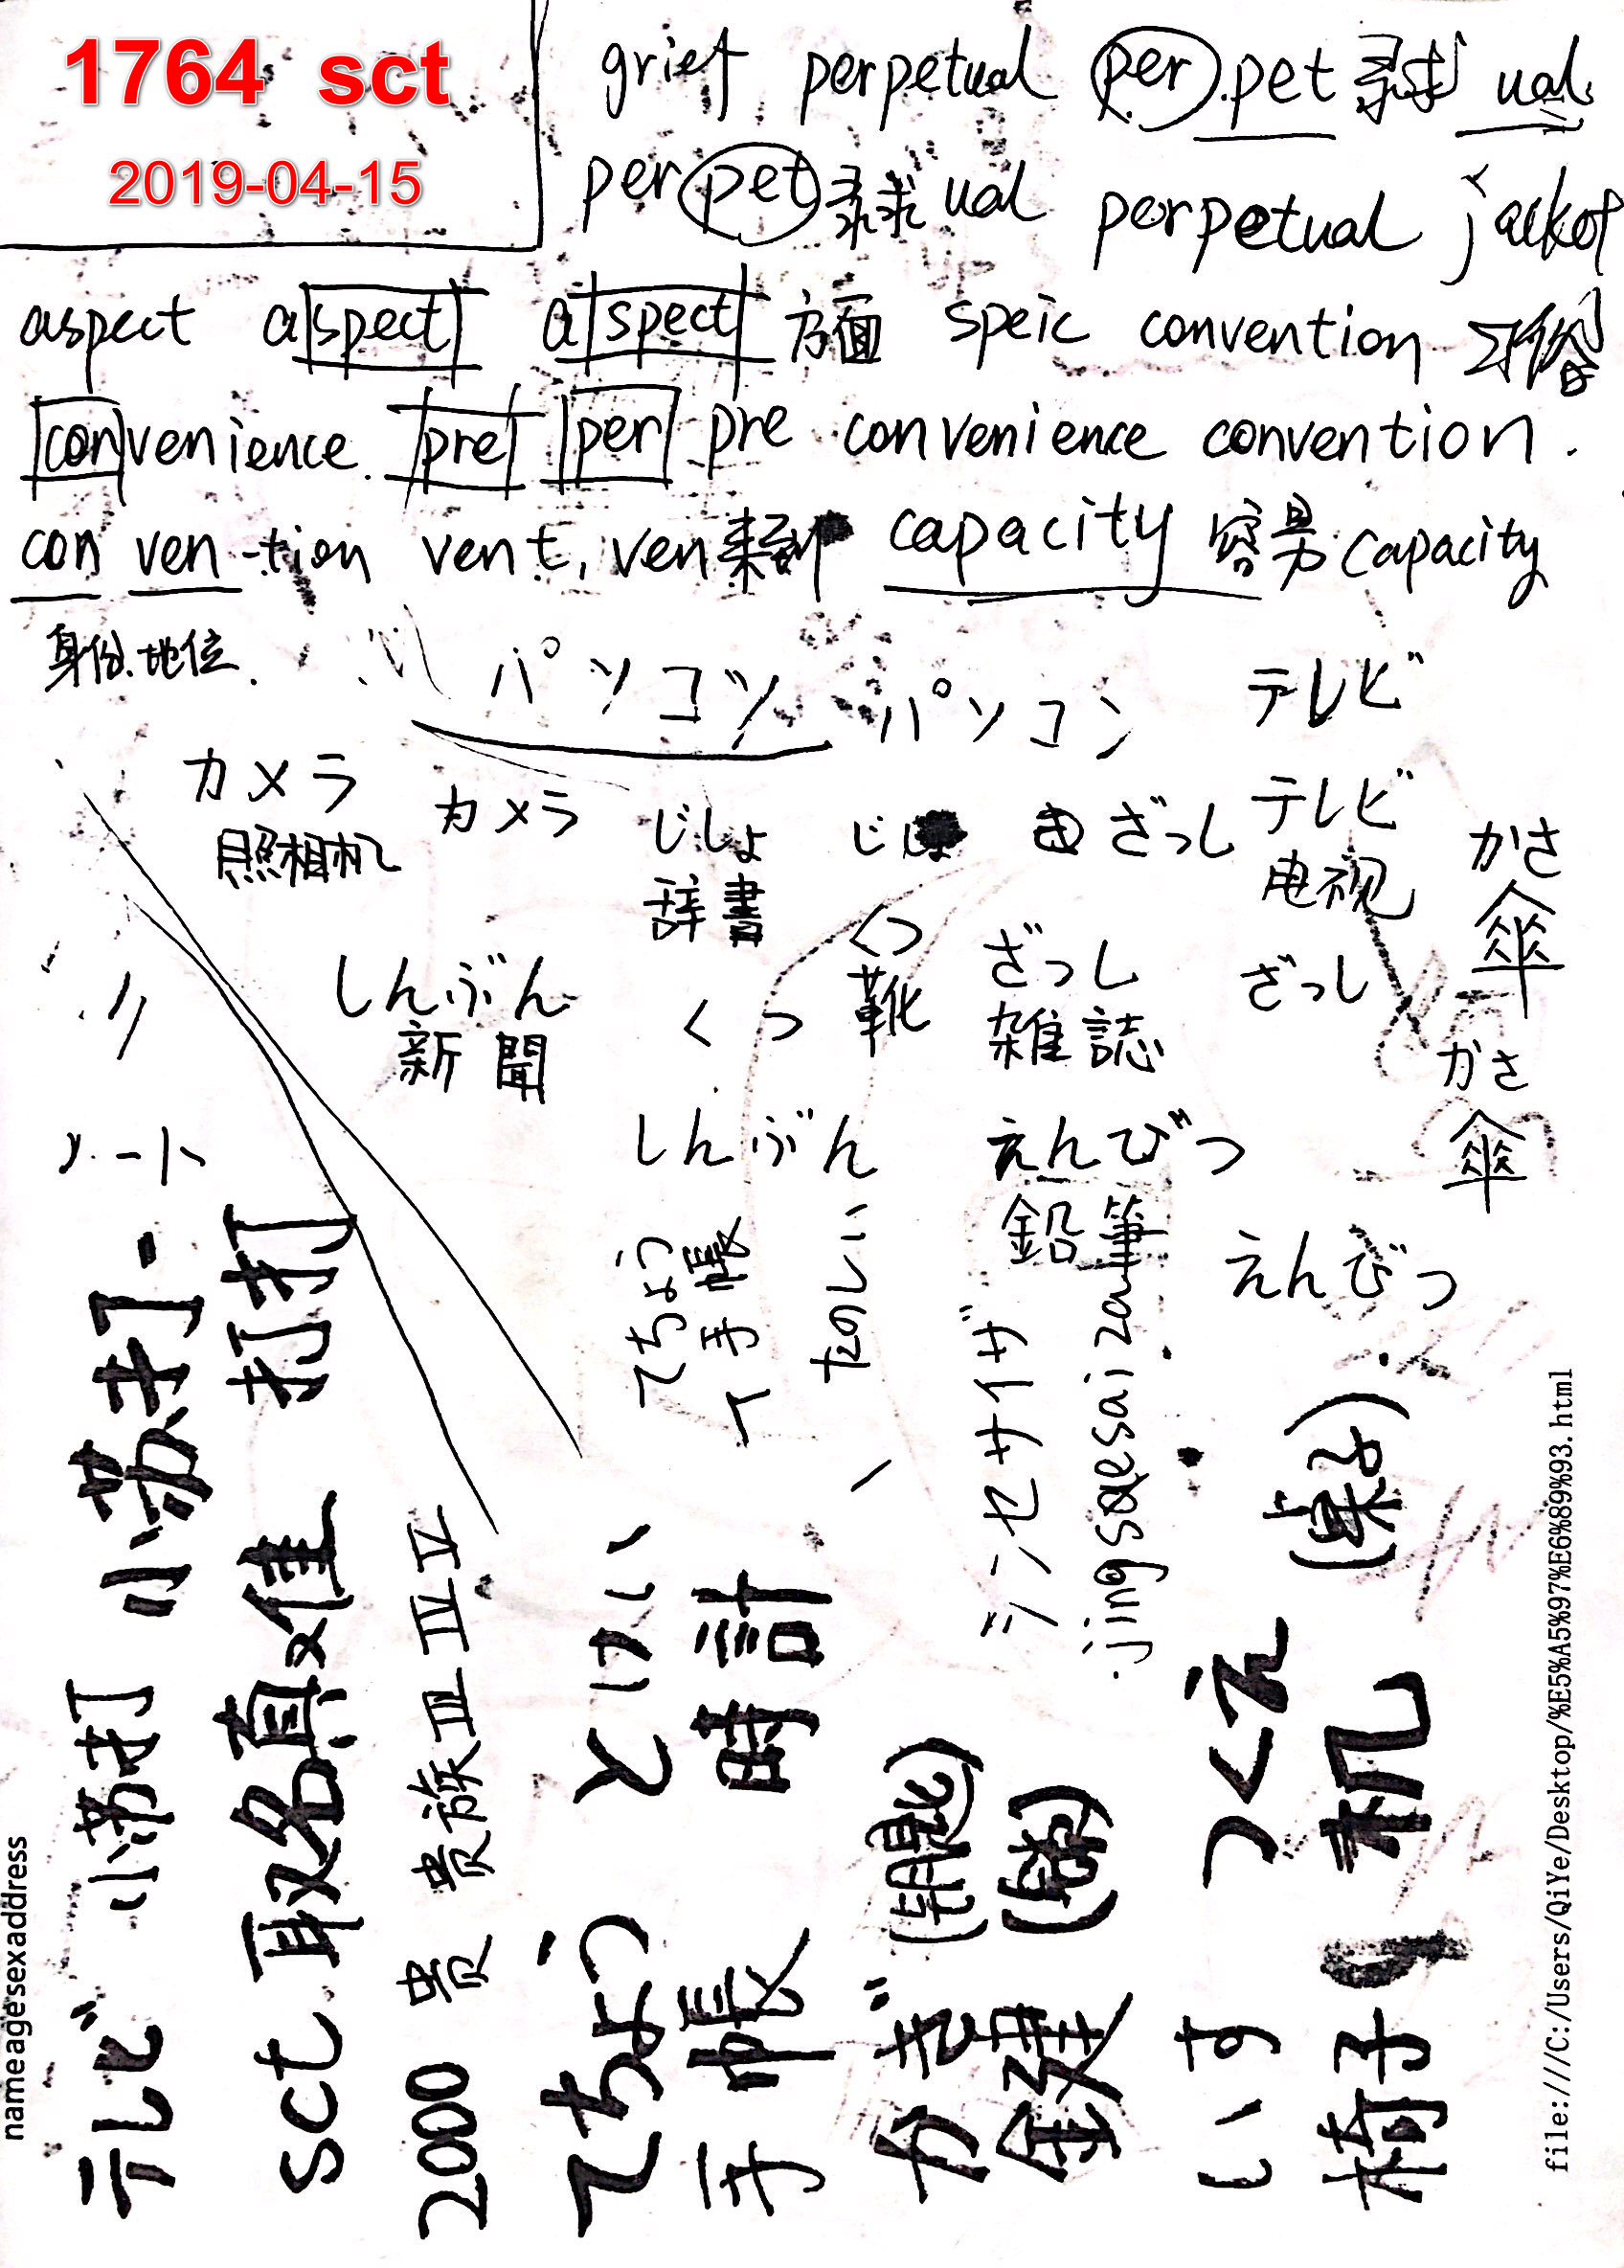 1764 sct
2019-04-15
grief perpetual per pet 寻求 ual
per pet 寻求 ual perpetual jacket
aspect aspect a spect 方面 speic convention 习俗
convenience. pre per pre convenience convention.
con ven-tion vent, ven 来到 capacity 容易 capacity
身份.地位.
パソコツ パソコン テレビ
カメラ カメラ じしょ じしょ ざっし テレビ かさ
照相机 辞書 电视 傘
しんぶん くつ くつ ざっし ざっし
新聞 靴 雑誌 かさ
ノート しんぶん えんぴつ 傘
鉛筆 えんびつ
てちょう
手帳
たのしい
シンセサイザ
jingsaesaiza
テレビ 小苏打 小苏打
sct 取名真难 打打
2000 贵 贵族 III IV IV
てちょう とけい
手帳 時計
かぎ
金建
いす つくえ (桌子)
椅子 机
nameagesexaddress
file:///C:/Users/QiYe/Desktop/%E5%A5%97%E6%89%93.html